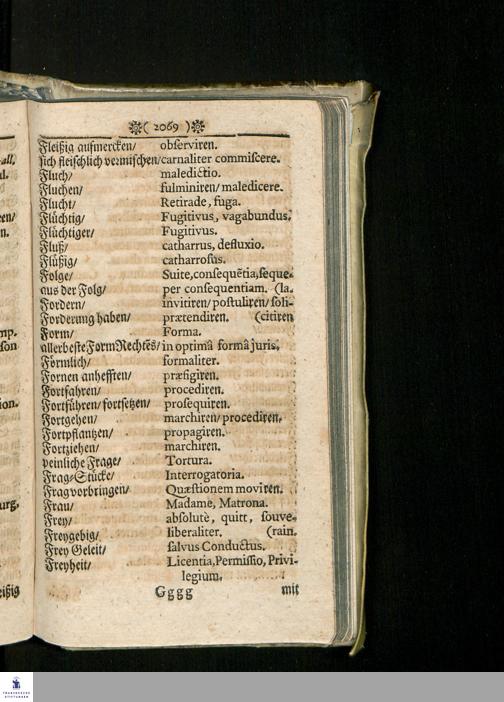 ❋( 2069 )❋
Fleißig aufmercken/ observiren.
sich fleischlich vermischen/ carnaliter commiscere.
Fluch/ maledictio.
Fluchen/ fulminiren/ maledicere.
Flucht/ Retirade, fuga.
Flüchtig/ Fugitivus, vagabundus.
Flüchtiger/ Fugitivus.
Fluß/ catharrus, defluxio.
Flüßig/ catharrosus.
Folge/ Suite, consequẽtia, seque-
aus der Folg/ per consequentiam. (la.
Fordern/ invitiren/ postuliren/ soli-
Forderung haben/ prætendiren. (citiren
Form/ Forma.
allerbeste Form Rechtes/ in optimâ formâ juris.
Förmlich/ formaliter.
Fornen anhefften/ præfigiren.
Fortfahren/ procediren.
Fortführen/ fortsetzen/ prosequiren.
Fortgehen/ marchiren/ procediren.
Fortpflantzen/ propagiren.
Fortziehen/ marchiren.
peinliche Frage/ Tortura.
Frag-Stücke/ Interrogatoria.
Frag vorbringen/ Quæstionem moviren.
Frau/ Madame, Matrona.
Frey/ absolutè, quitt, souve-
Freygebig/ liberaliter. (rain.
Frey Geleit/ salvus Conductus.
Freyheit/ Licentia, Permissio, Privi-
legium.
Gggg mit
all.
en/
n.
mp.
son
ion.
urg,
eißig
FRANCKESCHE
STIFTUNGEN